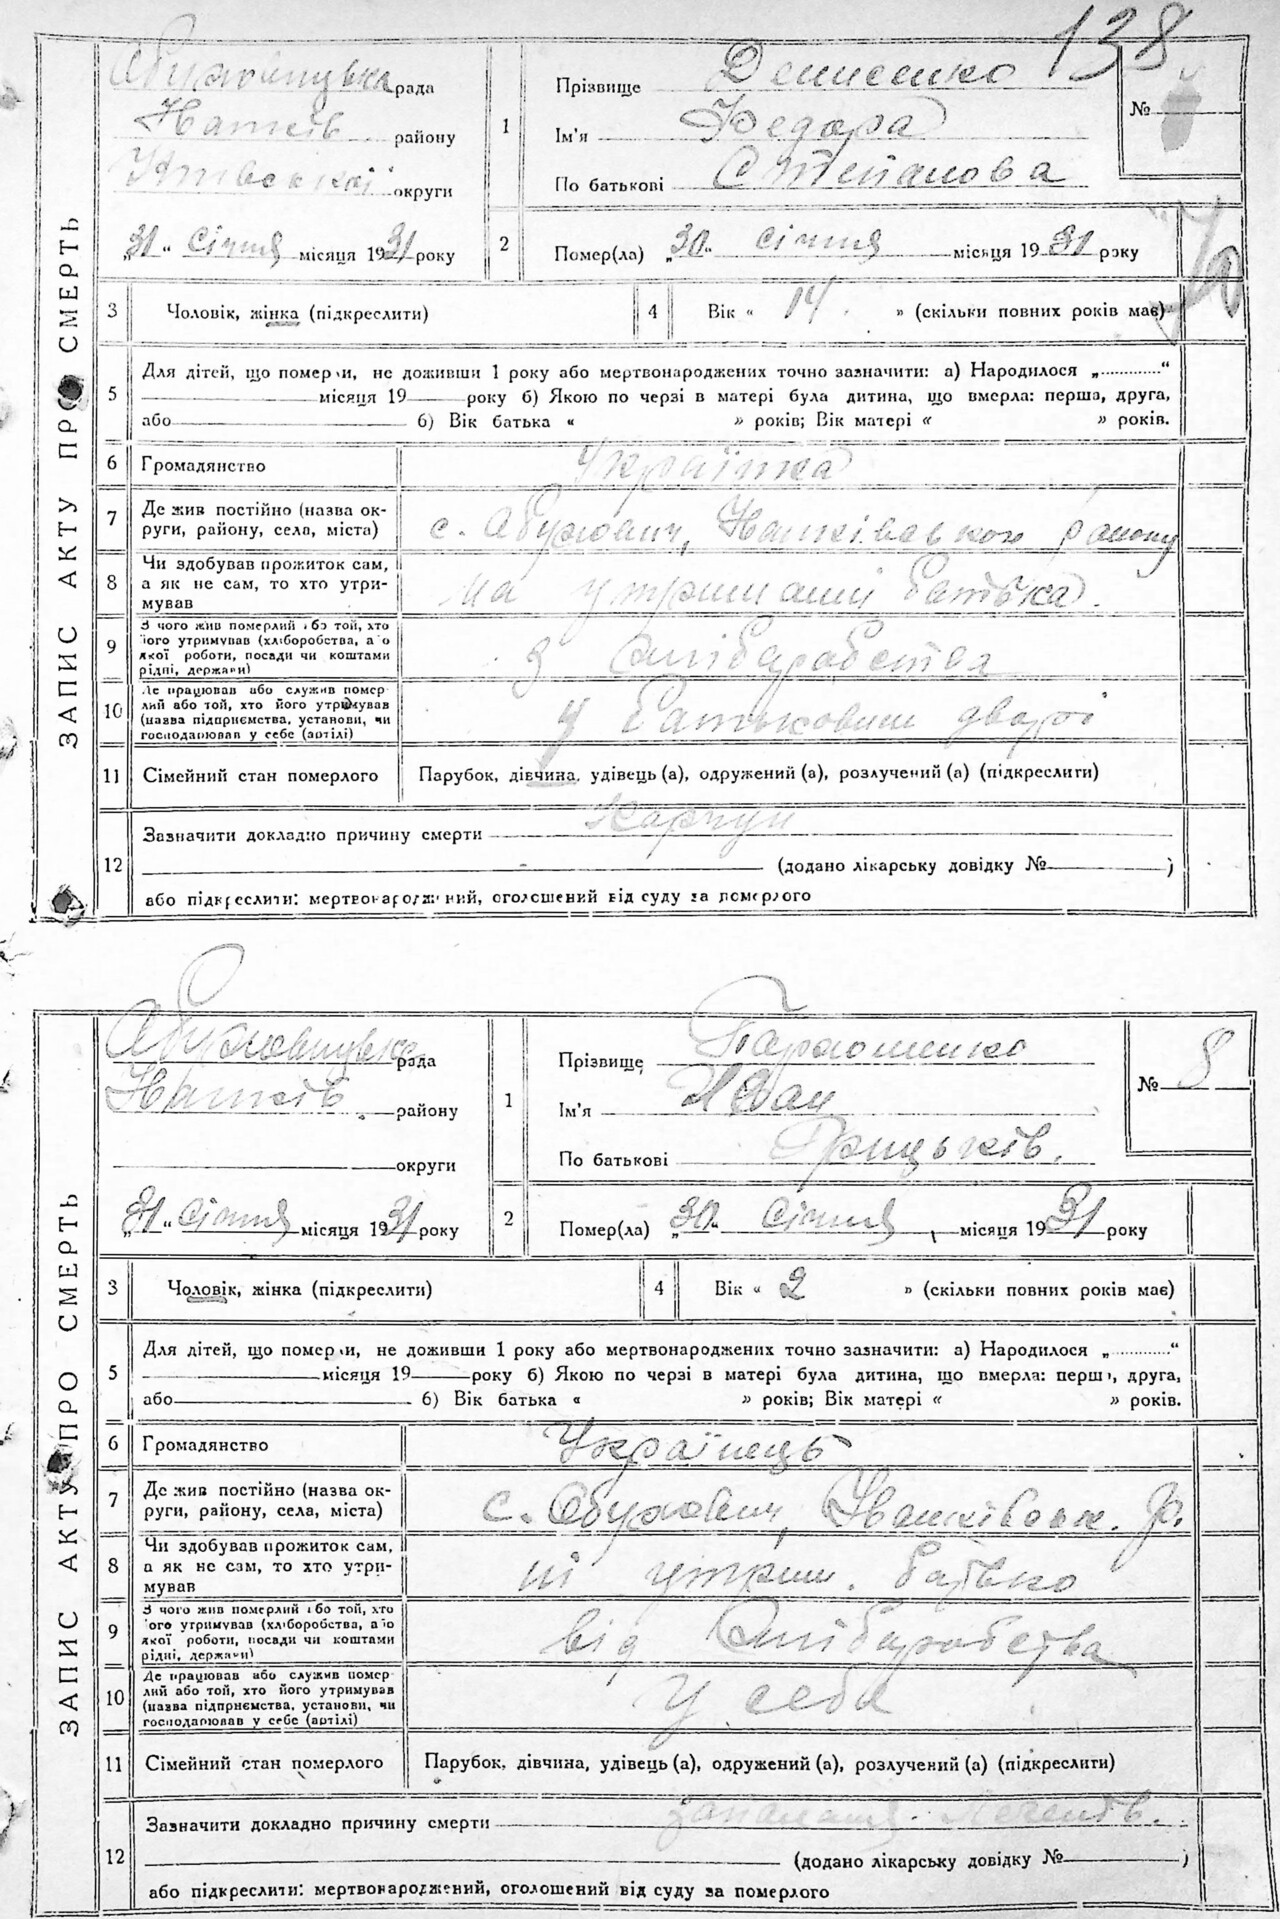 138
ЗАПИС АКТУ ПРО СМЕРТЬ
Абуховицька рада
Іванків району
Київської округи
„31“ Січня місяця 1931 року
1
Прізвище Денисенко
Ім'я Федора
По батькові Степанова
№
2
Помер(ла) „30“ січня місяця 1931 року
3 Чоловік, жінка (підкреслити)
4 Вік « 14 » (скільки повних років має)
5
Для дітей, що померли, не доживши 1 року або мертвонароджених точно зазначити: а) Народилося „............“
місяця 19 року б) Якою по черзі в матері була дитина, що вмерла: перша, друга,
або б) Вік батька « » років; Вік матері « » років.
6 Громадянство Українка
7 Де жив постійно (назва ок-
руги, району, села, міста) с. Абуховичі, Іванківського району
8 Чи здобував прожиток сам,
а як не сам, то хто утри-
мував на утриманні батька.
9 З чого жив померлий або той, хто
його утримував (хліборобства, або
якої роботи, посади чи коштами
рідні, держави) З хліборобства
10 Де працював або служив помер
лий або той, хто його утримував
(назва підприємства, установи, чи
господарював у себе (артілі) у батьковим дворі
11 Сімейний стан померлого Парубок, дівчина, удівець (а), одружений (а), розлучений (а) (підкреслити)
12
Зазначити докладно причину смерти
(додано лікарську довідку № )
або підкреслити: мертвонароджений, оголошений від суду за померлого
ЗАПИС АКТУ ПРО СМЕРТЬ
Абуховицька рада
Іванків. району
округи
„31“ Січня місяця 1931 року
1
Прізвище
Ім'я Іван
По батькові Грицьків.
№ 8
2
Помер(ла) „30“ Січня місяця 1931 року
3 Чоловік, жінка (підкреслити)
4 Вік « 2 » (скільки повних років має)
5
Для дітей, що померли, не доживши 1 року або мертвонароджених точно зазначити: а) Народилося „............“
місяця 19 року б) Якою по черзі в матері була дитина, що вмерла: перша, друга,
або б) Вік батька « » років; Вік матері « » років.
6 Громадянство Українець
7 Де жив постійно (назва ок-
руги, району, села, міста) с. Абуховичі, Іванківськ. р.
8 Чи здобував прожиток сам,
а як не сам, то хто утри-
мував ні утрим. батько
9 З чого жив померлий або той, хто
його утримував (хліборобства, або
якої роботи, посади чи коштами
рідні, держави) від хліборобства
10 Де працював або служив помер
лий або той, хто його утримував
(назва підприємства, установи, чи
господарював у себе (артілі) у себе
11 Сімейний стан померлого Парубок, дівчина, удівець (а), одружений (а), розлучений (а) (підкреслити)
12
Зазначити докладно причину смерти запалення легенів.
(додано лікарську довідку № )
або підкреслити: мертвонароджений, оголошений від суду за померлого